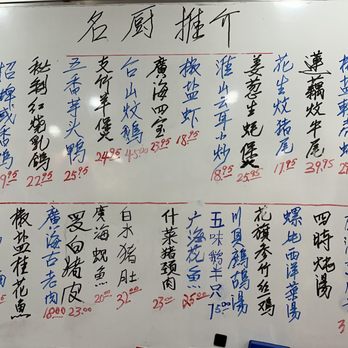 名厨推介
蓮藕炆牛尾
39.95
花生炆豬尾
17.95
姜葱生蚝煲
25.95
淮山云耳小炒
18.95
椒盐虾
18.95
廣海四宝
23.95
台山炆鵝
45.00
支竹羊煲
24.95
五香芋头鴨
25.95
秘制红燒乳鴿
22.95
招牌咸香鷄
四時炖湯
螺旭西洋菜湯
花旗参竹丝鷄
川貝鷓鴣湯
五味鵝半只
75.00
广海魷魚
25.00
什菜豬頸肉
23.00
白水猪肚
32.00
廣海魷魚
20.00
受白猪皮
23.00
廣海古老肉
18.00
椒盐桂花魚